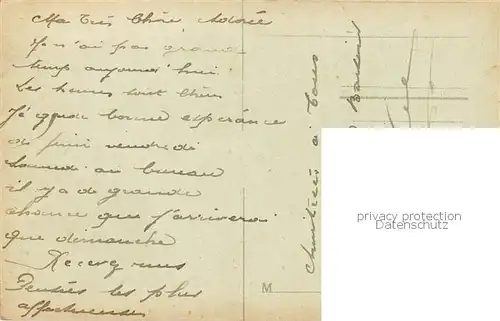 Ma Très Chère Adorée
Je n'ai pas grand
temps aujourd'hui
Les heures sont chères
J'ai grande bonne espérance
de finir vendredi
au bureau
il y a de grande
chance que j'arriverai
que dimanche
Recevez mes
Pensées les plus
affectueuses
Amitiés à Tous
privacy protection
Datenschutz
M